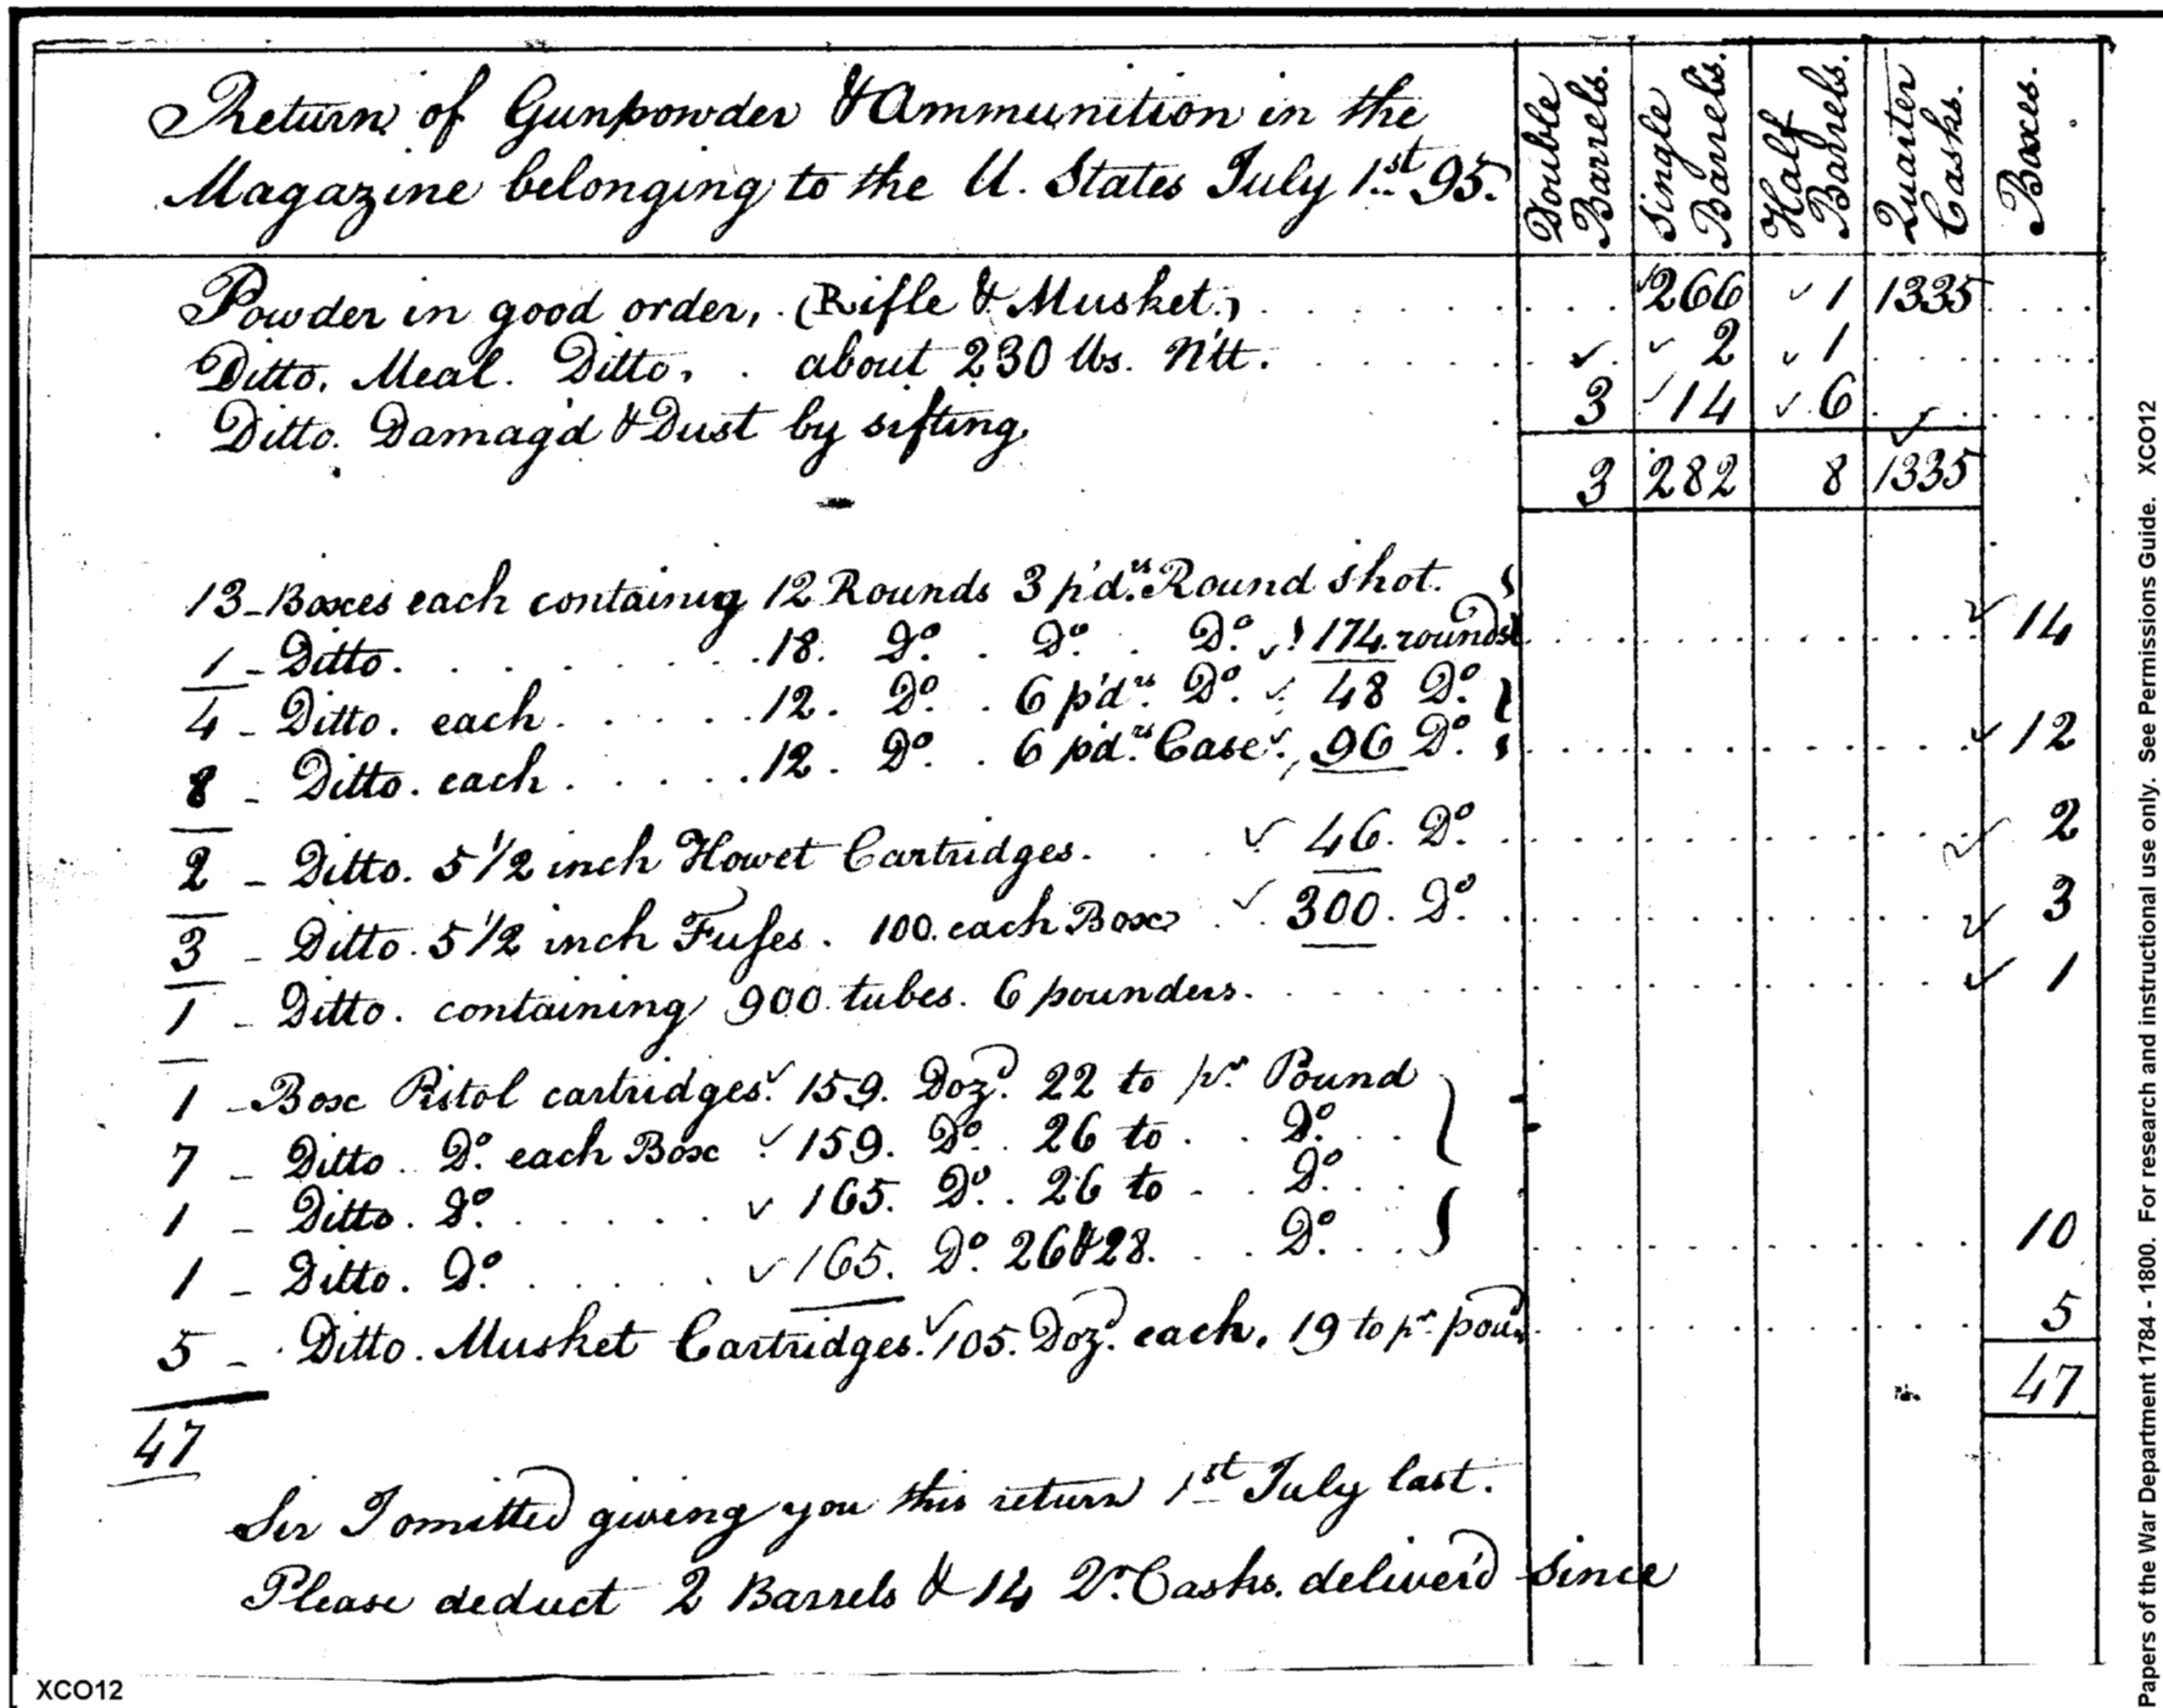 Return of Gunpowder & Ammunition in the
Magazine belonging to the U. States July 1st 95.
Double Barrels. Single Barrels. Half Barrels. Quarter Casks. Boxes.
Powder in good order, (Rifle & Musket.) 266 1 1335
Ditto. Meal. Ditto, about 230 lbs. N'tt. 2 1
Ditto. Damag'd & Dust by sifting 3 14 6
3 282 8 1335
13 - Boxes each containing 12 Rounds 3 p'd.rs Round shot.
1 - Ditto. 18. Do. Do. Do. 174 rounds 14
4 - Ditto. each 12. Do. 6 p'd.rs Do. 48 Do.
8 - Ditto. each 12. Do. 6 pd.rs Case. 96 Do. 12
2 - Ditto. 5 1/2 inch Howet Cartridges. 46. Do. 2
3 - Ditto. 5 1/2 inch Fuses. 100. each Box 300. Do. 3
1 - Ditto. containing 900 tubes. 6 pounders. 1
1 - Box Pistol cartridges. 159. Doz. 22 to pr. Pound
7 - Ditto. Do. each Box 159. Do. 26 to Do.
1 - Ditto. Do. 165. Do. 26 to Do.
1 - Ditto. Do. 165. Do. 26 & 28. Do. 10
5 - Ditto. Musket Cartridges. 105. Doz. each. 19 to pr. poun 5
47 47
Sir I omitted giving you this return 1st July last.
Please deduct 2 Barrels & 14 Qr. Casks. deliver'd since
XCO12
Papers of the War Department 1784 - 1800. For research and instructional use only. See Permissions Guide. XCO12